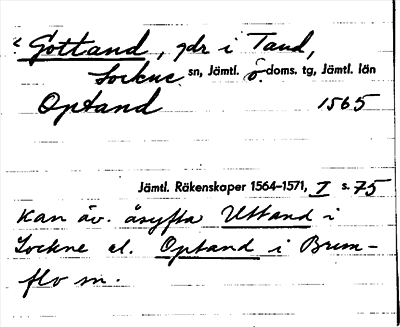 Gottand, gdr i Tand,
Lockne sn, Jämtl. ö. doms. tg, Jämtl. län
Optand 1565
Jämtl. Räkenskaper 1564–1571, I s. 75
Kan äv. åsyfta Uttand i
Lockne el. Optand i Brun-
flo sn.